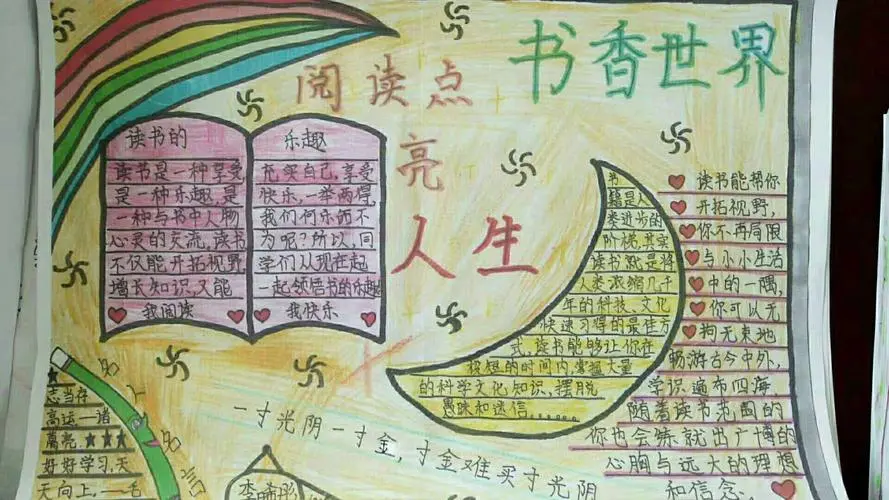 书香世界
阅读点
亮
人生
读书的
读书是一种享受
是一种乐趣,是
一种与书中人物
心灵的交流,读书
不仅能开拓视野
增长知识,又能
我阅读
乐趣
充实自己,享受
快乐,一举两得,
我们何乐而不
为呢?所以,同
学们从现在起
一起领悟书的乐趣
我快乐
书
籍是人
类进步的
阶梯,其实
读书就是将
人类浓缩几千
年的科技、文化
快速习得的最佳方
式,读书能够让你在
极短的时间内掌握大量
的科学文化知识,摆脱
愚昧和迷信......
读书能帮你
开拓视野,
你不再局限
与小小生活
中的一隅,
你可以无
拘无束地
畅游古今中外,
学识遍布四海,
随着读书范围的
你也会练就出广博的
心胸与远大的理想
和信念,
一寸光阴一寸金,寸金难买寸光阴
名人名言
志当存
高远.一诸
葛亮.★★★
好好学习,天
天向上,一毛